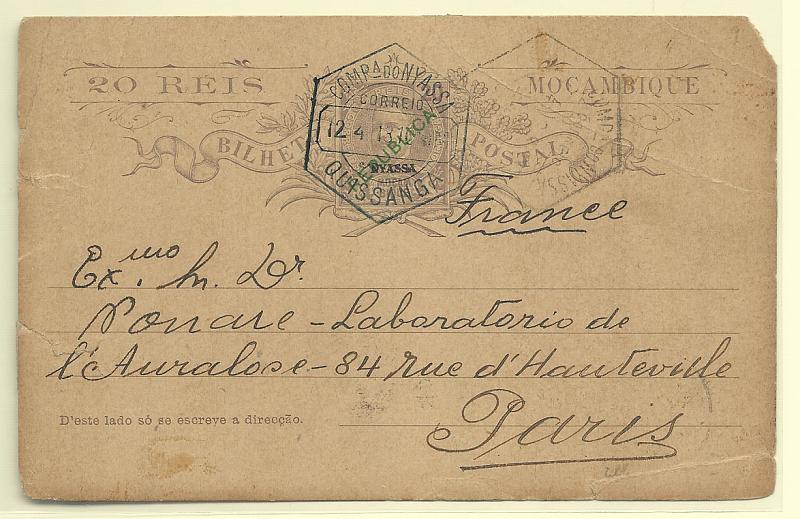 20 REIS
MOÇAMBIQUE
BILHETE POSTAL
COMPA DO NYASSA
CORREIO
12 4
REPUBLICA
NYASSA
QUISSANGA
France
Exmo. M. Dr.
Ponare - Laboratorio de
l'Auralose - 84 rue d'Hauteville
D'este lado só se escreve a direcção.
Paris